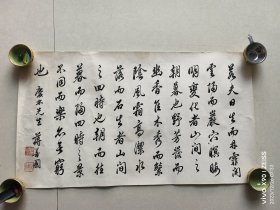 若夫日出而林霏開
雲歸而巖穴暝晦
明變化者山間之
朝暮也野芳發而
幽香佳木秀而繁
陰風霜高潔水
落而石出者山間
之四時也朝而往
暮而歸四時之景
不同而樂亦無窮
也 先生 蔣 國